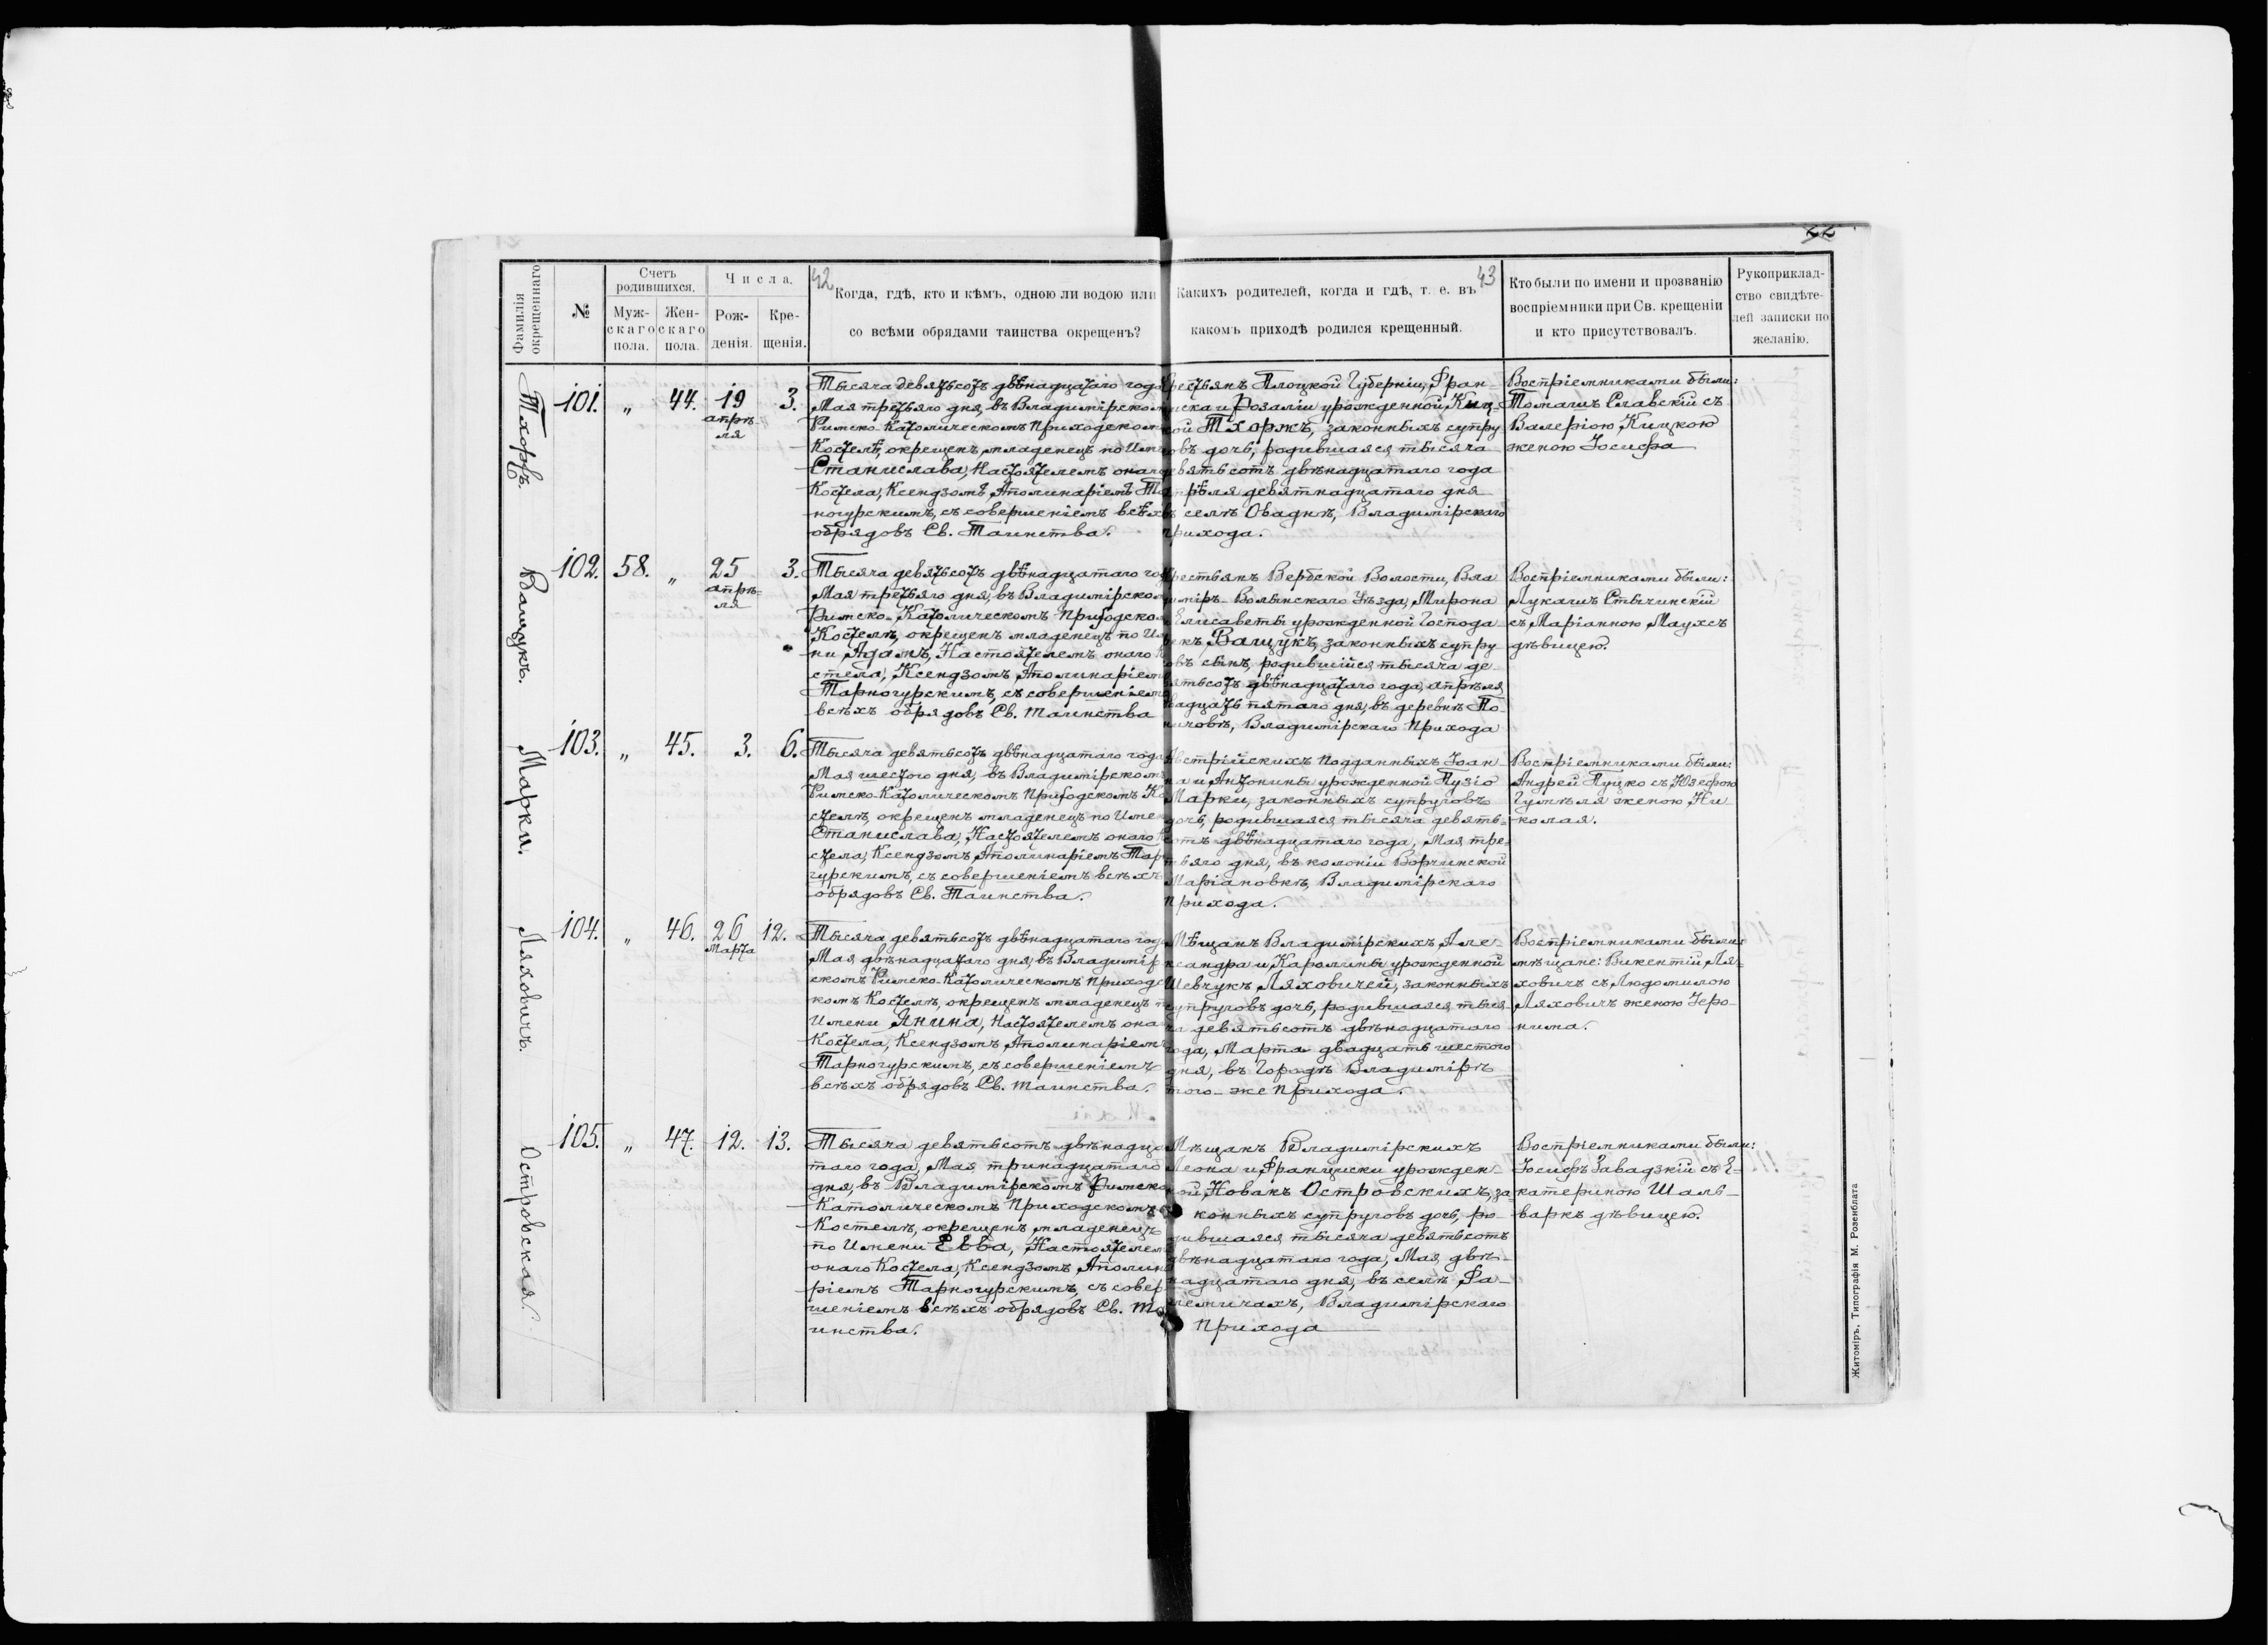 22
42
43
Фамилія окрещеннаго
№
Счетъ родившихся.
Муж-
скаго
пола.
Жен-
скаго
пола.
Числа.
Рож-
денія.
Кре-
щенія.
Когда, гдѣ, кто и кѣмъ, одною ли водою или
со всѣми обрядами таинства окрещенъ?
Какихъ родителей, когда и гдѣ, т. е. въ
какомъ приходѣ родился крещенный.
Кто были по имени и прозванію
воспріемники при Св. крещеніи
и кто присутствовалъ.
Рукоприклад-
ство свидѣте-
лей записки по
желанію.
Тхоржъ.
101. „ 44. 19 апрѣ-
ля 3.
Тысяча девятьсотъ двѣнадцатаго года
Мая третьяго дня, въ Владимірскомъ
Римско-Католическомъ Приходском
Костелѣ, окрещенъ младенецъ по Име
Станислава, Настоятелемъ онаго
Костела, Ксендзомъ Аполинаріемъ Та
ногурскимъ, съ совершеніемъ всѣхъ
обрядовъ Св. Таинства.
рестьянъ Плоцкой Губерніи, Фран-
иска и Розаліи урожденной Киц-
кой Тхоржъ, законныхъ супру
овъ дочь, родившаяся тысяча
евятьсотъ двѣнадцатаго года
прѣля девятнадцатаго дня
въ селѣ Оваднѣ, Владимірскаго
прихода.
Воспріемниками были:
Томашъ Славскій съ
Валеріою Кицкою
женою Іосифа
Ващукъ.
102. 58. „ 25 апрѣ-
ля 3.
Тысяча девятьсотъ двѣнадцатаго го
Мая третьяго дня, въ Владимірском
Римско-Католическомъ Приходско
Костелѣ, окрещенъ младенецъ по И
ни Адамъ, Настоятелемъ онаго
стела, Ксендзомъ Аполинаріем
Тарногурскимъ, съ совершеніем
всѣхъ обрядовъ Св. таинства
рестьянъ Вербской Волости, Вла
диміръ-Волынскаго Уѣзда, Мирона
Елисаветы урожденной Господа
рекъ Ващукъ, законныхъ супру
овъ сынъ, родившійся тысяча де
вятьсотъ двѣнадцатаго года, апрѣля
вадцать пятаго дня, въ деревнѣ По-
ничовѣ, Владимірскаго Прихода
Воспріемниками были:
Лукашъ Стычинскій
съ Маріанною Маухсъ
дѣвицею.
Марки.
103. „ 45. 3. 6.
Тысяча девятьсотъ двѣнадцатаго года
Мая шестого дня, въ Владимірскомъ
Римско-Католическомъ Приходскомъ Ко
стелѣ, окрещенъ младенецъ по Имен
Станислава, Настоятелемъ онаго
стела, Ксендзомъ Аполинаріемъ Тар
гурскимъ, съ совершеніемъ всѣхъ
обрядовъ Св. Таинства.
встрійскихъ подданныхъ Іоан-
на и Антонины урожденной Пузіо
Марки, законныхъ супруговъ
дочь, родившаяся тысяча девять-
сотъ двѣнадцатаго года, Мая тре-
тьяго дня, въ колоніи Ворчинской
Маріановкѣ, Владимірскаго
прихода.
Воспріемниками были:
Андрей Пуцко съ Юзефою
Гумѣля женою Ни
колая.
Ляховичъ.
104. „ 46. 26 Марта 12.
Тысяча девятьсотъ двѣнадцатаго год
Мая двѣнадцатаго дня, въ Владимір
скомъ Римско-Католическомъ Приходс
комъ Костелѣ, окрещенъ младенецъ п
Имени Янина, Настоятелемъ она
Костела, Ксендзомъ Аполинаріем
Тарногурскимъ, съ совершеніемъ
всѣхъ обрядовъ Св. таинства.
Мѣщанъ Владимірскихъ, Але-
ксандра и Каролины урожденной
Шевчукъ Ляховичей, законныхъ
супруговъ дочь, родившаяся тыся
ча девятьсотъ двѣнадцатаго
года, Марта двадцать шестого
дня, въ Городѣ Владимірѣ
того-же прихода.
Воспріемниками были
мѣщане: Викентій Ля-
ховичъ съ Людомилою
Ляховичъ женою Іеро-
нима.
Островская.
105. „ 47. 12. 13.
Тысяча девятьсотъ двѣнадца
таго года, Мая тринадцатаго
дня, въ Владимірскомъ Римско
Католическомъ Приходскомъ
Костелѣ, окрещенъ младенецъ
по Имени Евва, Настоятелем
онаго Костела, Ксендзомъ Аполин
ріемъ Тарногурскимъ, съ совер
шеніемъ всѣхъ обрядовъ Св. Та
инства.
Мѣщанъ Владимірскихъ
Леона и Франциски урожден-
ой Новакъ Островскихъ, за-
конныхъ супруговъ дочь, ро-
дившаяся тысяча девятьсотъ
двѣнадцатаго года, Мая двѣ-
надцатаго дня, въ селѣ Фа-
лемичахъ, Владимірскаго
Прихода
Воспріемниками были:
Іосифъ Завадзкій съ Е-
катериною Шаль-
варкъ дѣвицею.
Житоміръ, Типографія М. Розенблата